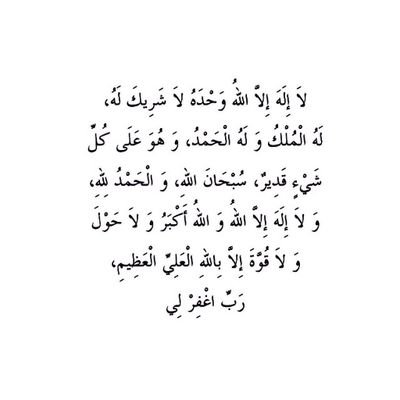 لاَ إِلَهَ إِلاَّ اللهُ وَحْدَهُ لاَ شَرِيكَ لَهُ،
لَهُ الْمُلْكُ وَ لَهُ الْحَمْدُ، وَ هُوَ عَلَى كُلِّ
شَيْءٍ قَدِيرٌ، سُبْحَانَ اللهِ، وَ الْحَمْدُ لِلهِ،
وَ لاَ إِلَهَ إِلاَّ اللهُ وَ اللهُ أَكْبَرُ وَ لاَ حَوْلَ
وَ لاَ قُوَّةَ إِلاَّ بِاللهِ الْعَلِيِّ الْعَظِيمِ،
رَبِّ اغْفِرْ لِي